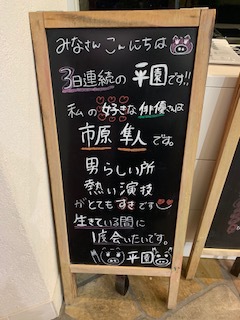 みなさん こんにちは
3日連続の 平園です!!
私の好きな俳優さんは
市原 隼人です。
男らしい所
熱い演技
がとてもすきです
生きている間に
1度会いたいです。
平園